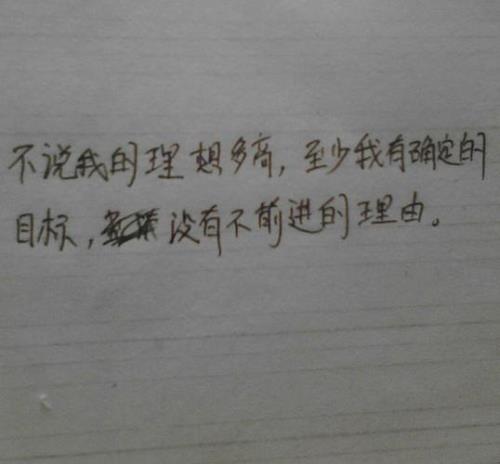 不说我的理想多高，至少我有确定的
目标，没有不前进的理由。